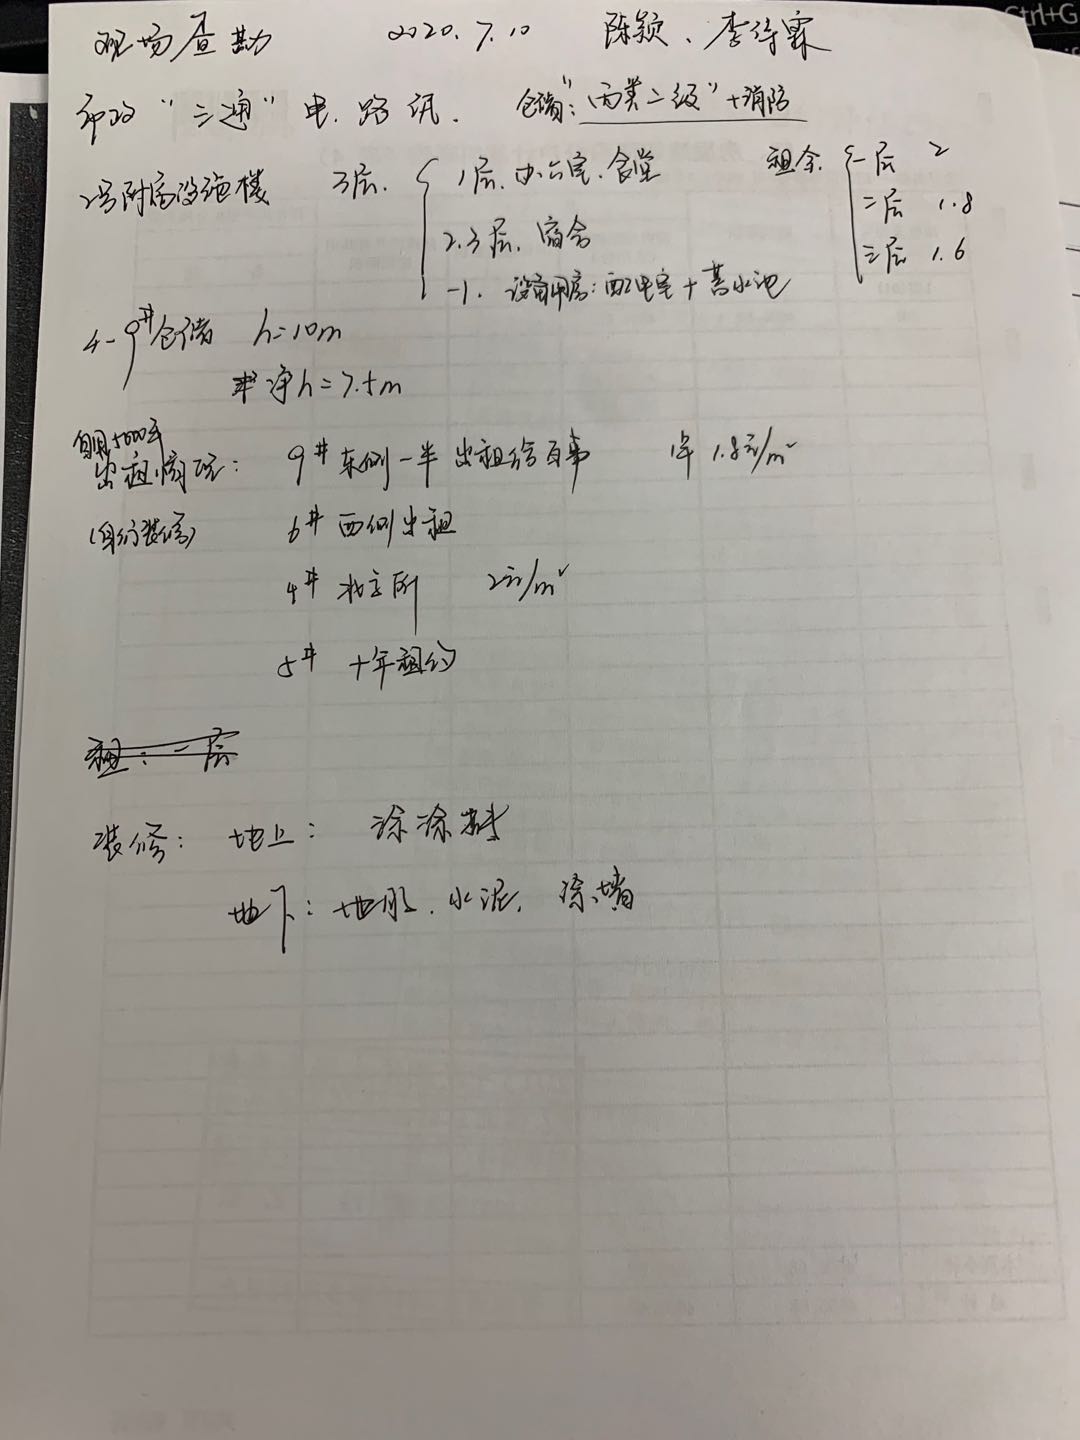 现场查勘 2020.7.10 陈颖、李
市政“三通”电.路.讯. 仓储:“丙类二级”+消防
2号附属设施楼 3层. 1层.办公室.食堂 租金 一层 2
2.3层.宿舍 二层 1.8
-1.设备用房:配电室+蓄水池 三层 1.6
4-9#仓储 h=10m
净h=7.5m
自用5000平
出租情况: 9#东侧一半出租给百事 1年 1.8元/m²
(自行装修) 6#西侧出租
4# 2元/m²
5# 十年租约
租:一层
装修: 地上: 涂涂料
地下: 地.水泥. 涂墙
Ctrl+G